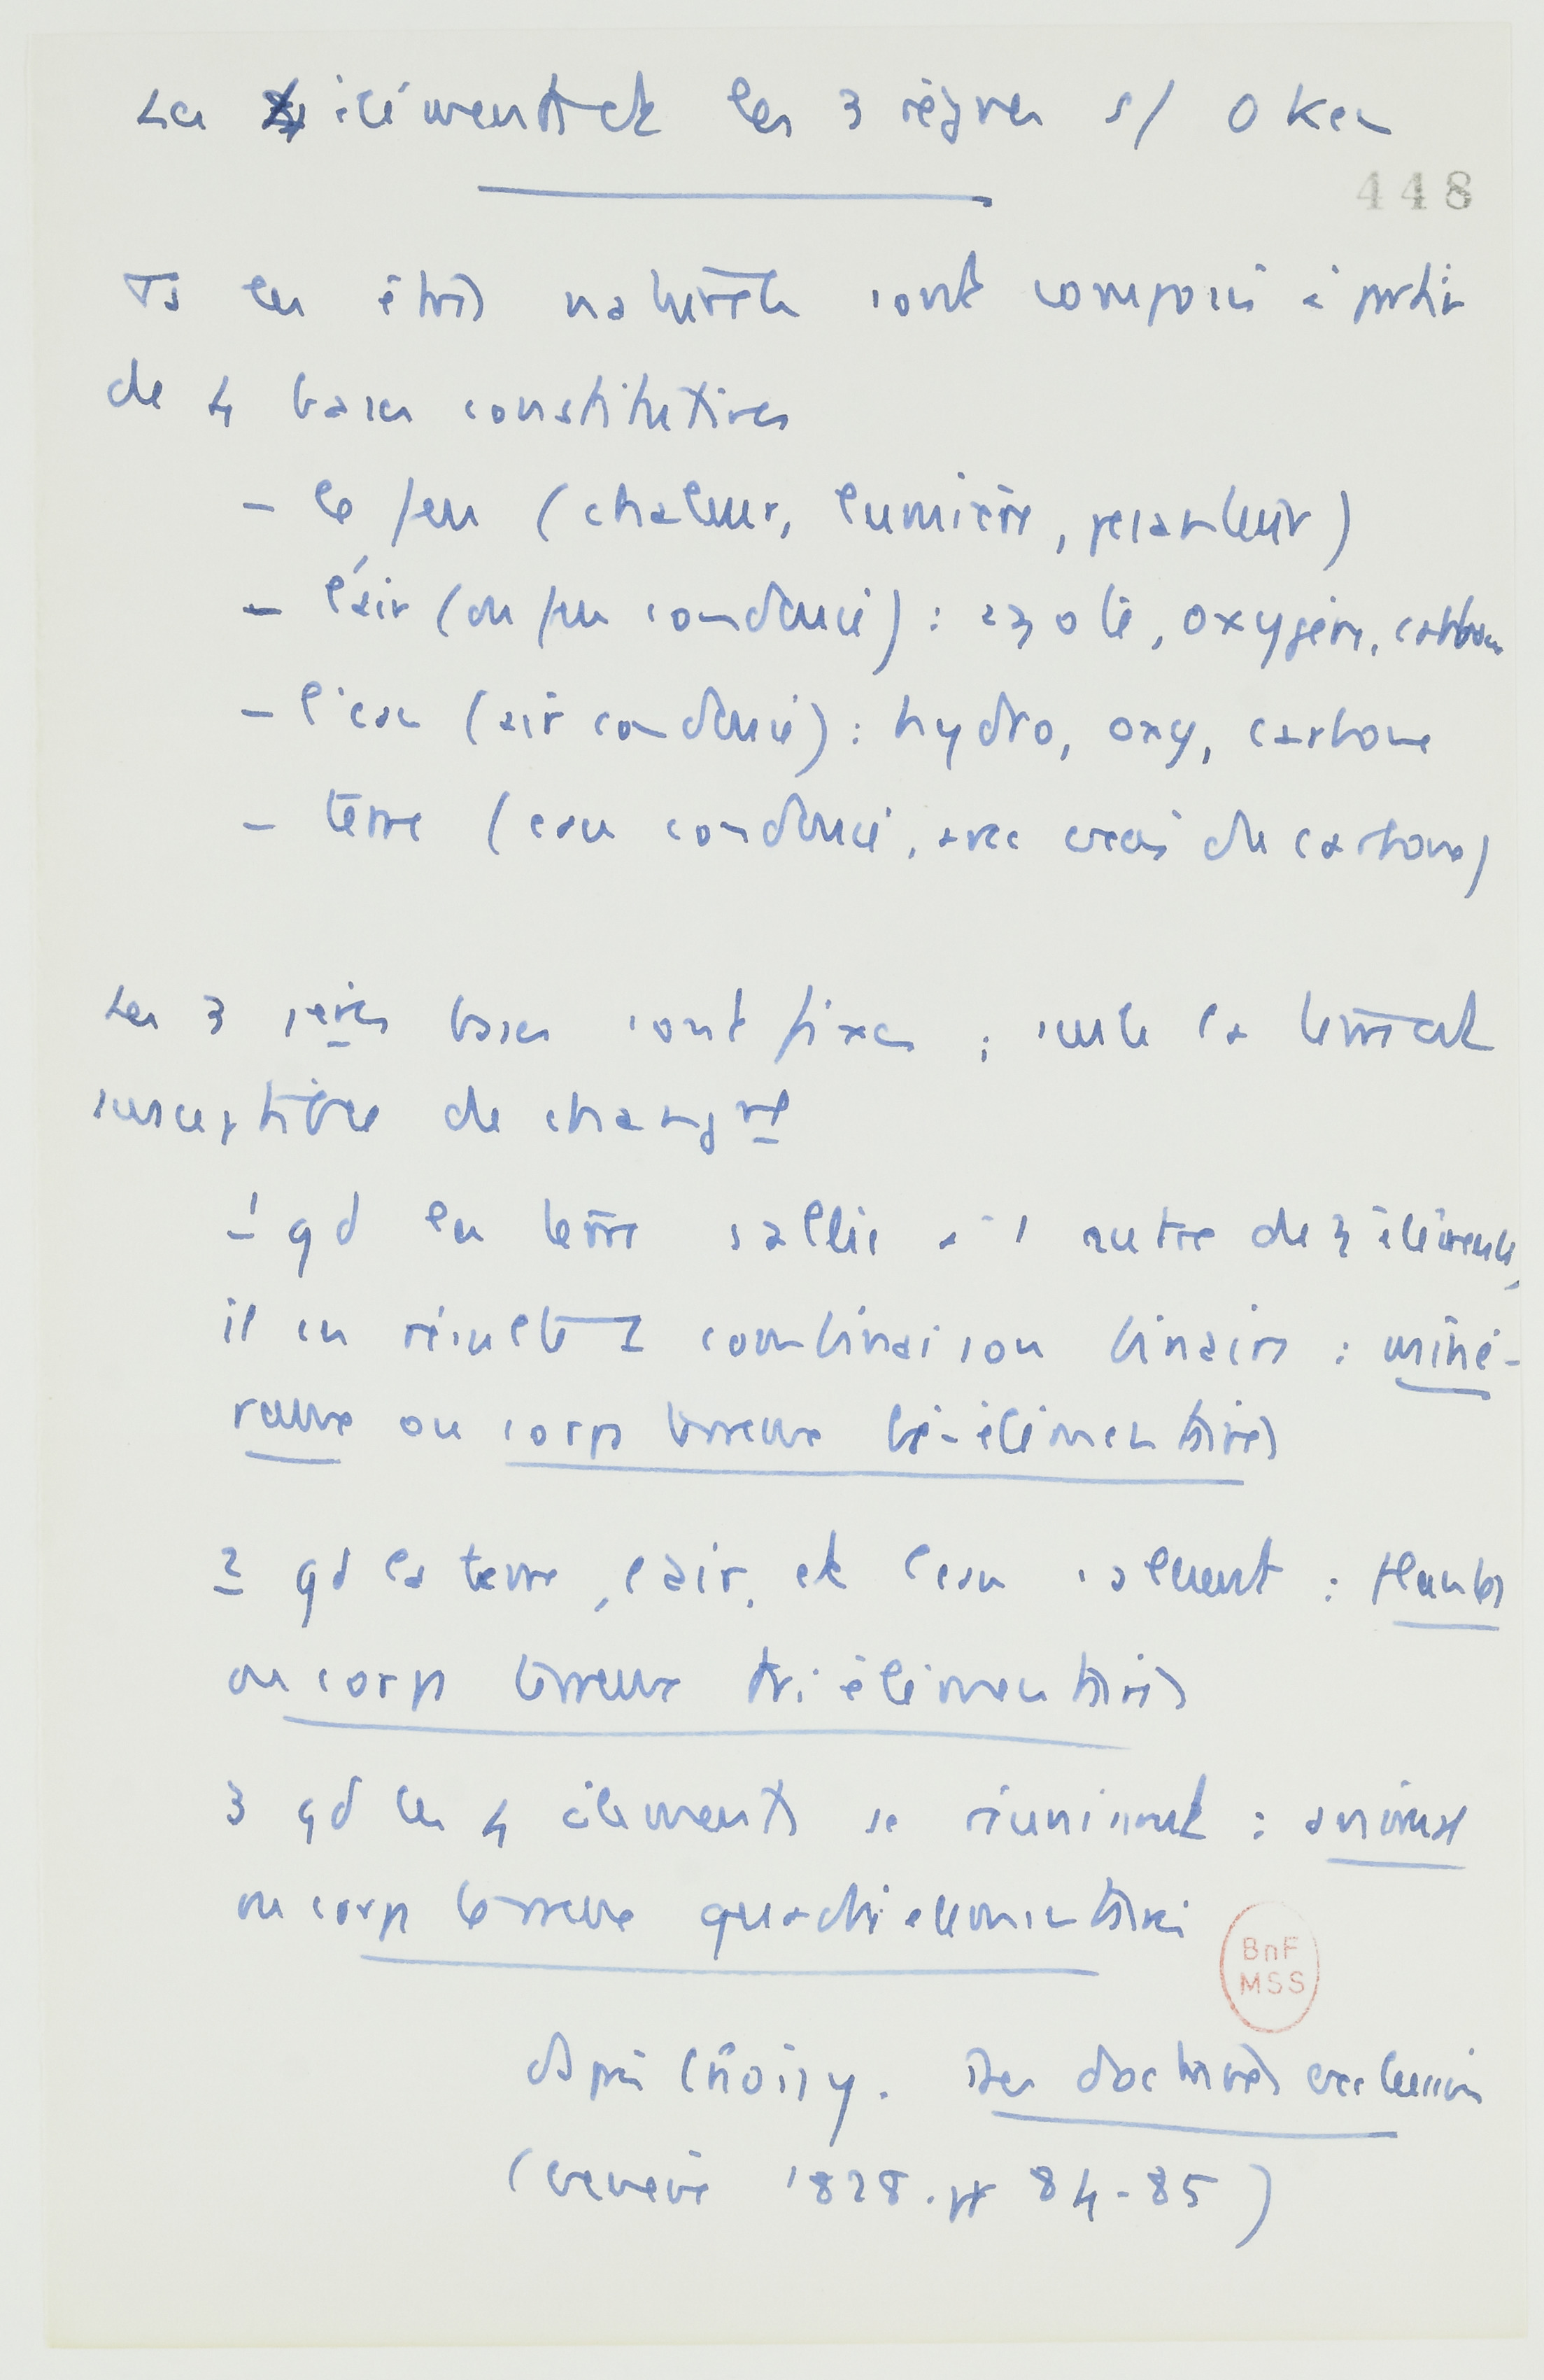 Les 4 éléments et les 3 règnes s/ Oken
448
Ts les êtres naturels sont composés à partir
de 4 bases constitutives
- le feu (chaleur, lumière, pesanteur)
- l'air (ou feu condensé) : azote, oxygène, carbone
- l'eau (air condensé) : hydro, oxy, carbone
- terre (eau condensée, avec excès du carbone)
Les 3 1ères bases sont fixes ; seule la terre est
susceptible de changt
1 qd la terre s'allie à 1 autre des éléments,
il en résulte 1 combinaison binaire : miné-
raux ou corps terreux bi-élémentaires
2 qd la terre, l'air, et l'eau s'allient : plantes
ou corps terreux tri élémentaires
3 qd les 4 éléments se réunissent : animx
ou corps terreux quadriélémentaires
BnF
MSS
Des doctrines exclusives
(Genève 1828. pp 84-85)